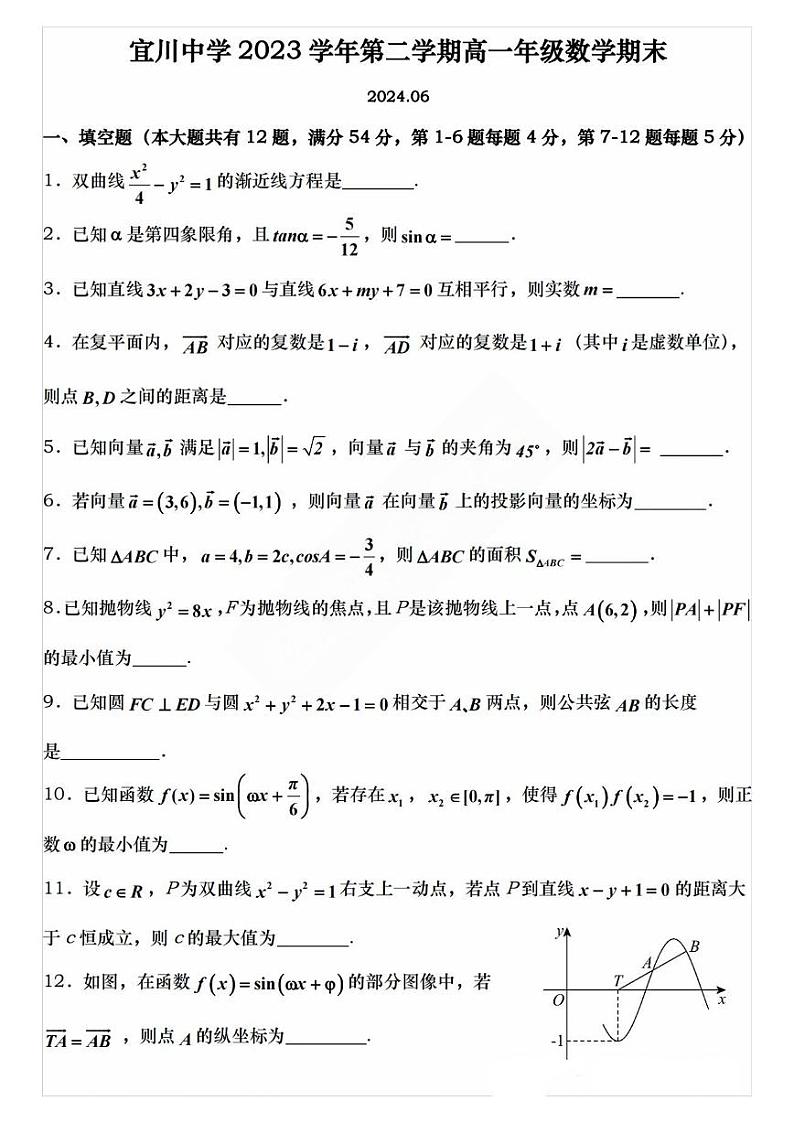 宜川中学 2023 学年第二学期高一年级数学期末
2024.06
一、填空题（本大题共有 12 题，满分 54 分，第 1-6 题每题 4 分，第 7-12 题每题 5 分）
1．双曲线 $\frac{x^2}{4}-y^2=1$ 的渐近线方程是________.
2．已知 α 是第四象限角，且 $tan\alpha=-\frac{5}{12}$，则 $\sin\alpha=$______．
3．已知直线 $3x+2y-3=0$ 与直线 $6x+my+7=0$ 互相平行，则实数 $m=$_______．
4．在复平面内，$\overrightarrow{AB}$ 对应的复数是 $1-i$，$\overrightarrow{AD}$ 对应的复数是 $1+i$（其中 $i$ 是虚数单位)，
则点 $B,D$ 之间的距离是______．
5．已知向量 $\vec{a},\vec{b}$ 满足 $|\vec{a}|=1,|\vec{b}|=\sqrt{2}$，向量 $\vec{a}$ 与 $\vec{b}$ 的夹角为 $45°$，则 $|2\vec{a}-\vec{b}|=$ _______．
6．若向量 $\vec{a}=(3,6),\vec{b}=(-1,1)$，则向量 $\vec{a}$ 在向量 $\vec{b}$ 上的投影向量的坐标为________．
7．已知 $\Delta ABC$ 中，$a=4,b=2c,cosA=-\frac{3}{4}$，则 $\Delta ABC$ 的面积 $S_{\Delta ABC}=$_______．
8.已知抛物线 $y^2=8x$，F为抛物线的焦点,且 P是该抛物线上一点,点 $A(6,2)$,则$|PA|+|PF|$
的最小值为______.
9．已知圆 $FC\perp ED$ 与圆 $x^2+y^2+2x-1=0$ 相交于 A、B 两点，则公共弦 $AB$ 的长度
是___________．
10．已知函数 $f(x)=\sin\left(\omega x+\frac{\pi}{6}\right)$，若存在 $x_1$，$x_2\in[0,\pi]$，使得 $f(x_1)f(x_2)=-1$，则正
数 ω 的最小值为______.
11．设 $c\in R$，P为双曲线 $x^2-y^2=1$ 右支上一动点，若点 P到直线 $x-y+1=0$ 的距离大
于 c 恒成立，则 c的最大值为________.
12．如图，在函数 $f(x)=\sin(\omega x+\varphi)$ 的部分图像中，若
$\overrightarrow{TA}=\overrightarrow{AB}$，则点 $A$ 的纵坐标为_________.
y
B
A
T
O
x
-1